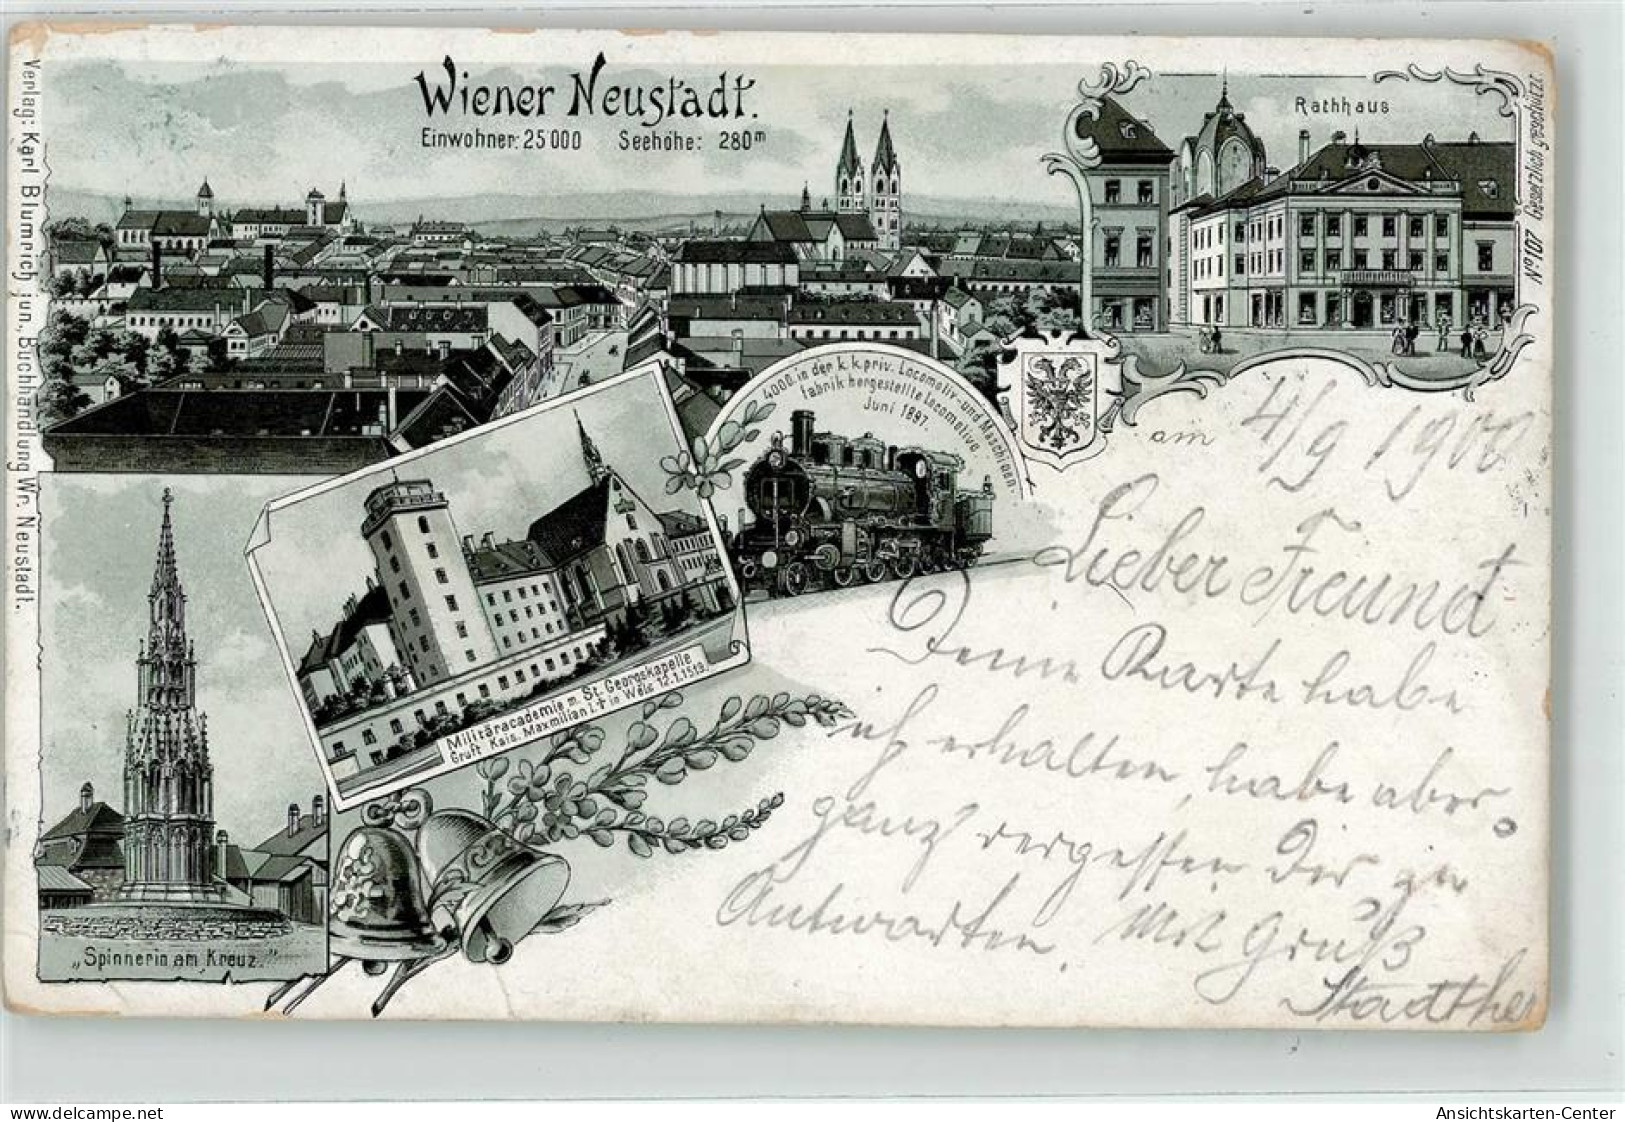 Wiener Neustadt.
Einwohner: 25000 Seehöhe: 280m
Rathhaus
Verlag: Karl Blumrich jun., Buchhandlung Wr. Neustadt.
No 201a Gesetzlich geschützt
4000. in der k. k. priv. Locomotiv- und Maschinen-
fabrik hergestellte Locomotive
Juni 1897.
Militäracademie m. St. Georgskapelle
Gruft Kais. Maxmilian I. † in Wels 12.1.1519.
„Spinnerin am Kreuz."
am 4/9 1900
Lieber Freund
Deine Karte habe
ich erhalten, habe aber
ganz vergessen Dir zu
Antworten. Mit Gruß
delcampe.net
Ansichtskarten-Center